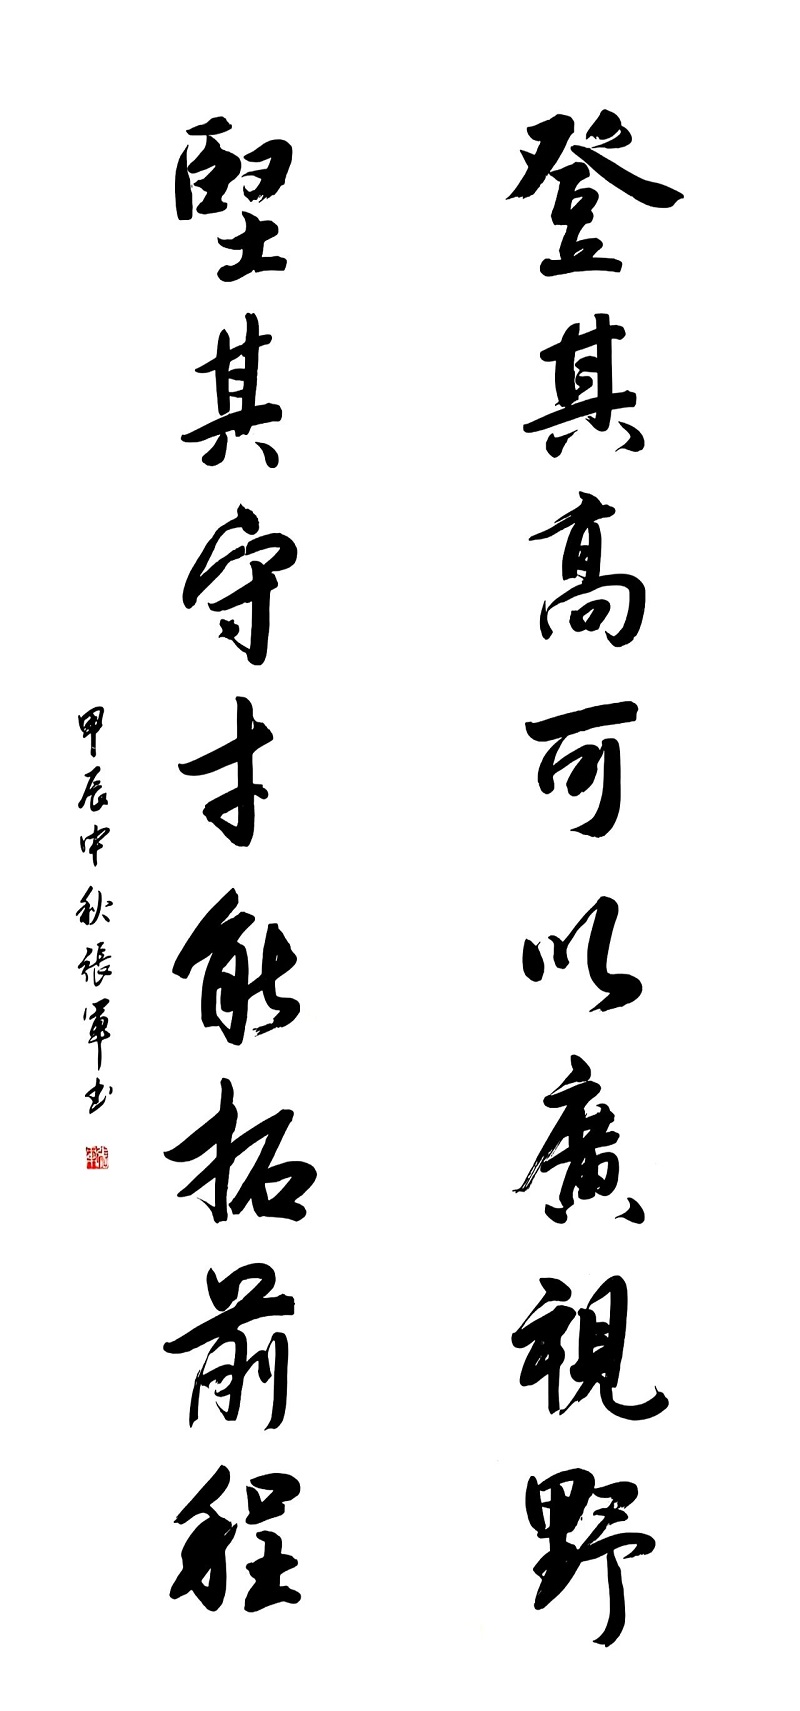 登其高可以廣視野
堅其守才能拓前程
甲辰中秋張軍书
張軍